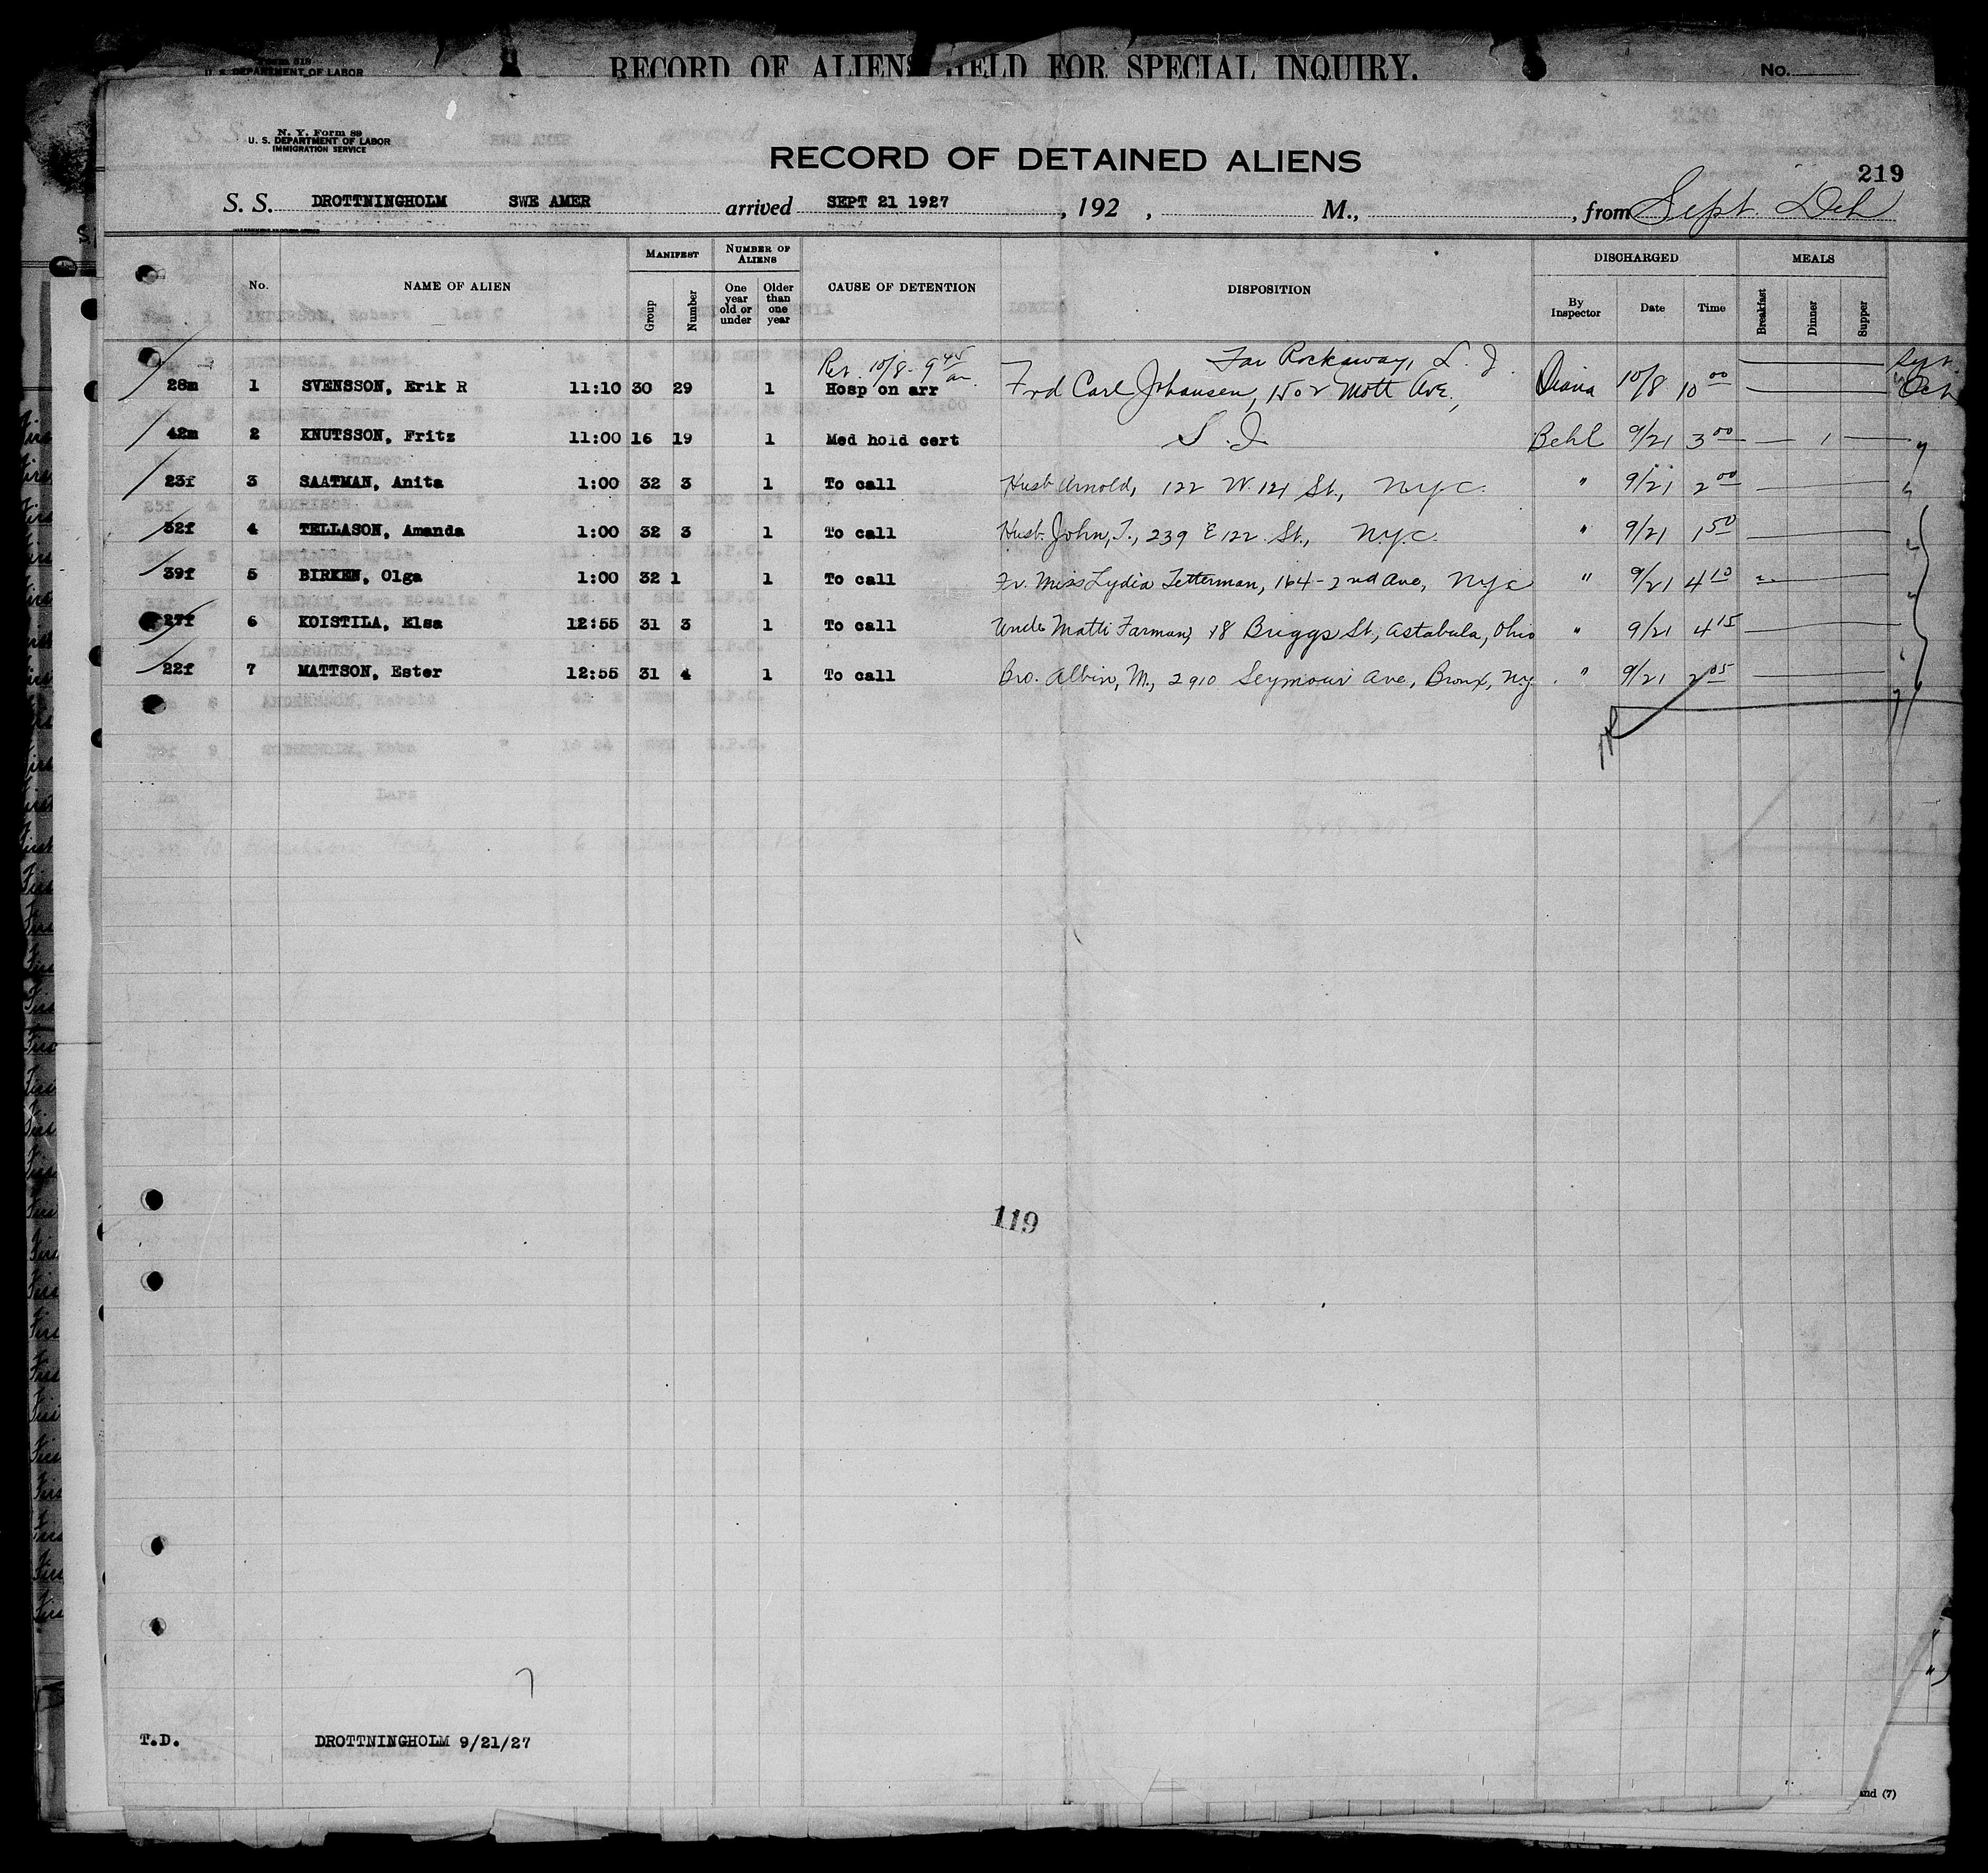 Form 519
U. S. DEPARTMENT OF LABOR
RECORD OF ALIENS HELD FOR SPECIAL INQUIRY.
No.
N. Y. Form 89
U. S. DEPARTMENT OF LABOR
IMMIGRATION SERVICE
RECORD OF DETAINED ALIENS
219
S. S. DROTTNINGHOLM SWE AMER arrived SEPT 21 1927, 192 , M., , from Sept. Deh
No. NAME OF ALIEN MANIFEST Group Number NUMBER OF ALIENS One year old or under Older than one year CAUSE OF DETENTION DISPOSITION DISCHARGED By Inspector Date Time MEALS Breakfast Dinner Supper
Ret. 10/8 - 9 45 am. Far Rockaway, L. I. Sept.
28m 1 SVENSSON, Erik R 11:10 30 29 1 Hosp on arr Frd Carl Johansen, 1502 Mott Ave., Diana 10/8 10 00 Oct
42m 2 KNUTSSON, Fritz 11:00 16 19 1 Med hold cert S. I. Behl 9/21 3 00 — 1 —
23f 3 SAATMAN, Anita 1:00 32 3 1 To call Husb Arnold, 122 W. 121 St., NYC. " 9/21 2 00
32f 4 TELLASON, Amanda 1:00 32 3 1 To call Husb. John, T., 239 E 122 St., NYC. " 9/21 1 50
39f 5 BIRKEN, Olga 1:00 32 1 1 To call Fr. Miss Lydia Tetterman, 164 - 2nd Ave, NYC " 9/21 4 10
27f 6 KOISTILA, Elsa 12:55 31 3 1 To call Uncle Matti Farman, 18 Briggs St, Astabula, Ohio " 9/21 4 15
22f 7 MATTSON, Ester 12:55 31 4 1 To call Bro. Albin, M., 2910 Seymour Ave, Bronx, NY. " 9/21 2 05
119
7
T.D. DROTTNINGHOLM 9/21/27
and (7)